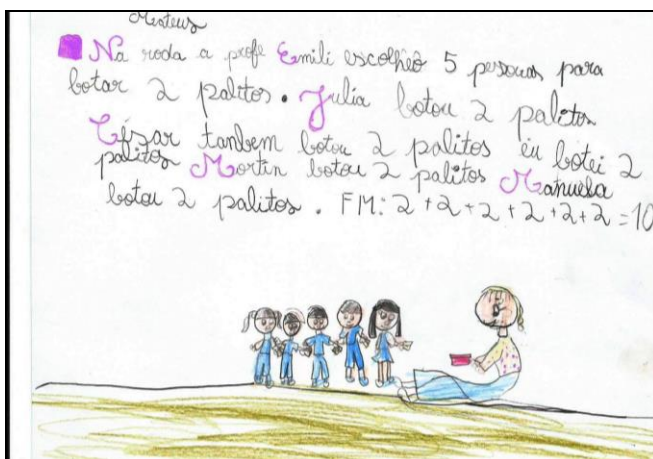 Mateus
Na roda a profe Emili escolheo 5 pessoas para
botar 2 palitos. Julia botou 2 palitos
César tanbem botou 2 palitos eu botei 2
palitos Mortin botou 2 palitos Manuela
botou 2 palitos. FM: 2+2+2+2+2+2=10